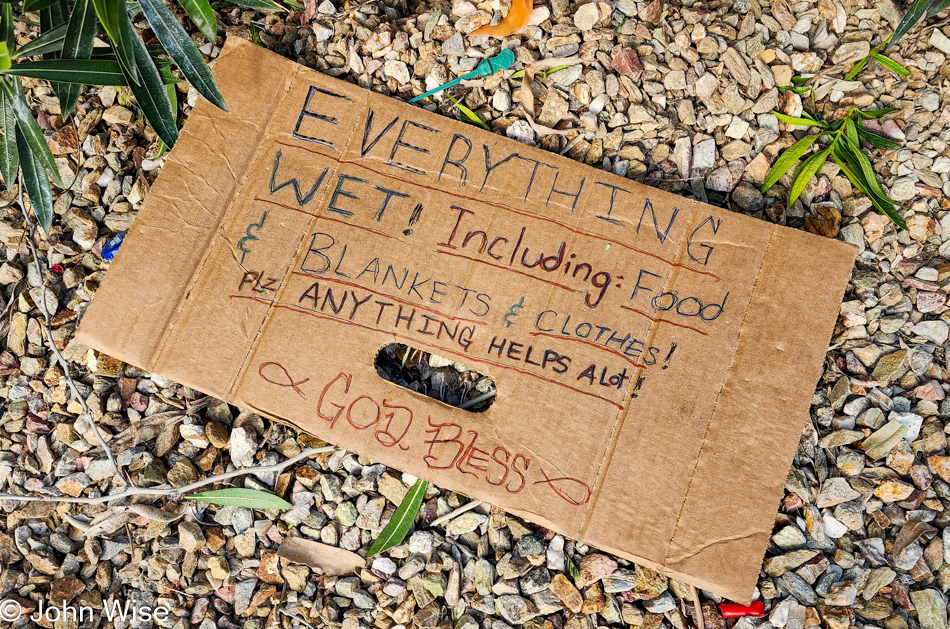 EVERYTHING
WET! Including: Food
& BLANKETS & CLOTHES!
PLZ ANYTHING HELPS ALot!
GOD BLESS
© John Wise